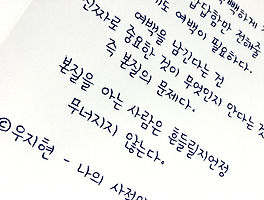 빽빽하게
답답함만 전해줄
도 여백이 필요하다.
여백을 남긴다는 건
진짜로 중요한 것이 무엇인지 안다는 것
즉 본질의 문제다.
본질을 아는 사람은 흔들릴지언정
무너지지 않는다.
©우지현 - 나의 사적인